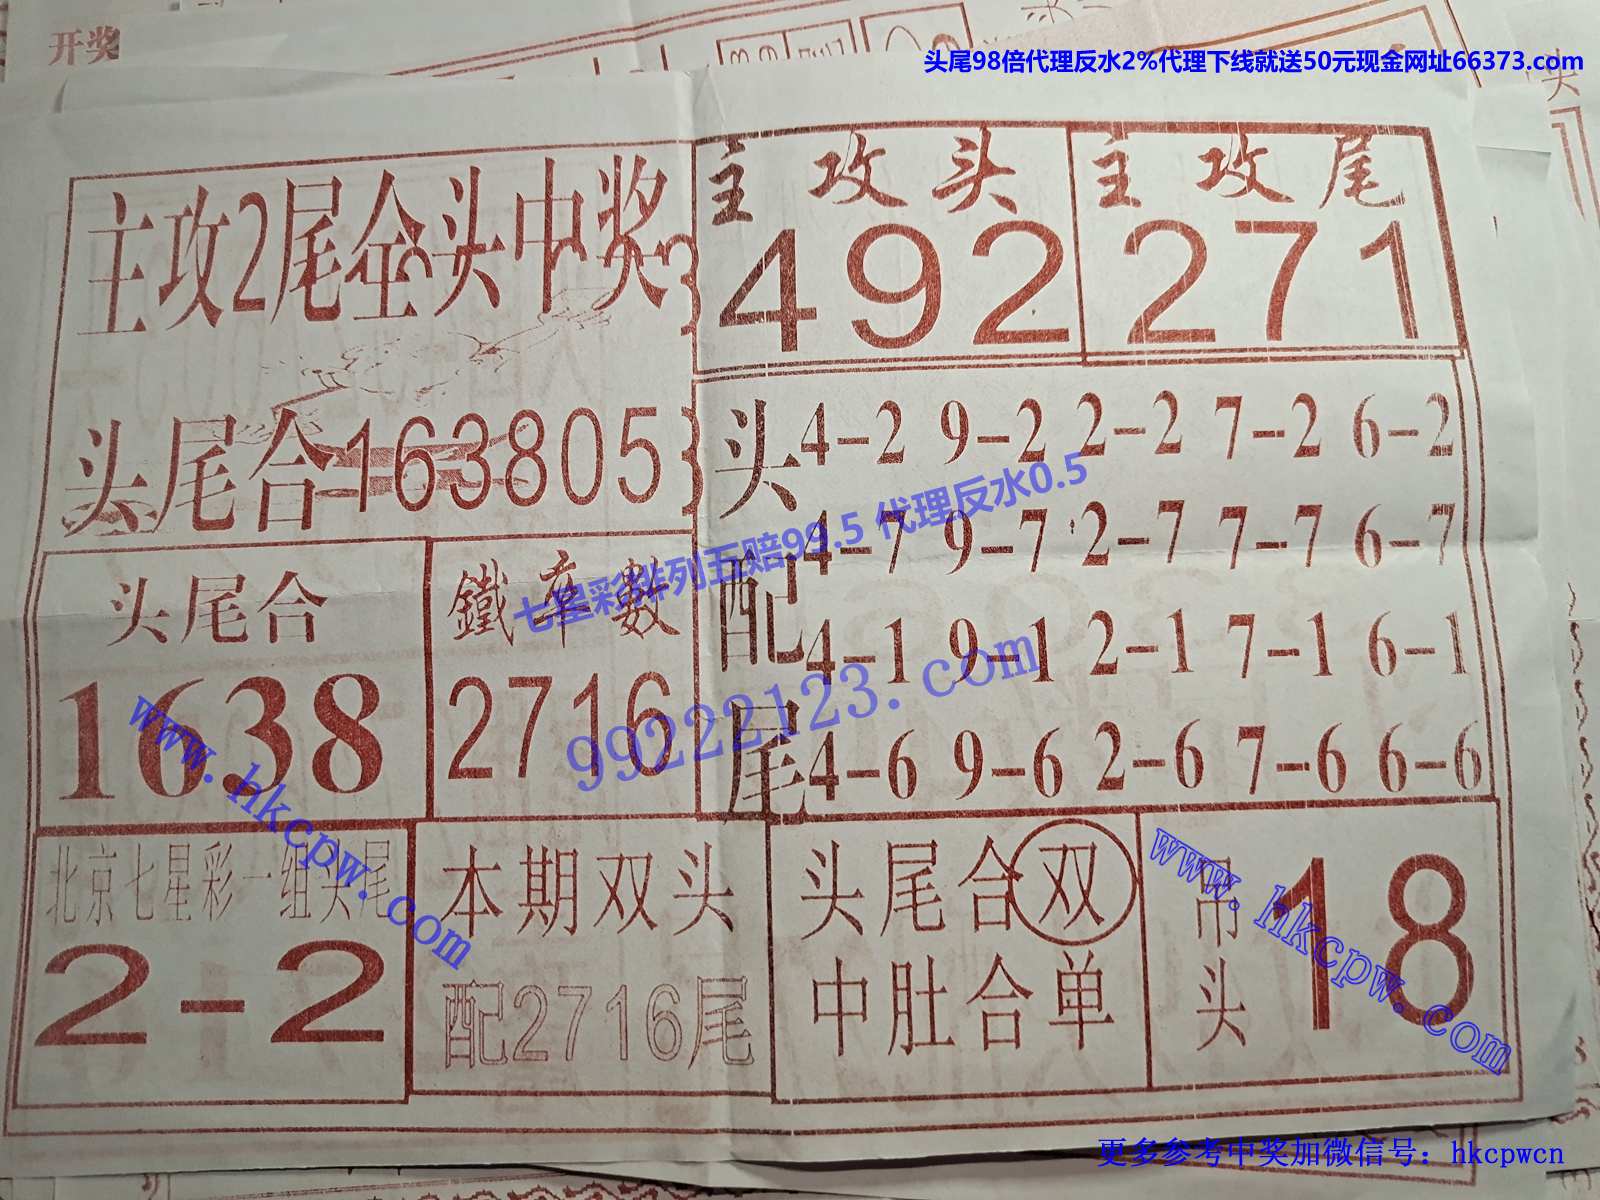 开奖
头尾98倍代理反水2%代理下线就送50元现金网址66373.com
主攻2尾全头中奖
主攻头
492
主攻尾
271
头尾合163805
头配尾
4-2 9-2 2-2 7-2 6-2
4-7 9-7 2-7 7-7 6-7
4-1 9-1 2-1 7-1 6-1
4-6 9-6 2-6 7-6 6-6
七星彩排列五赔99.5 代理反水0.5
99222123.com
头尾合
1638
鐵率數
2716
www.hkcpw.com
北京七星彩一组头尾
2-2
本期双头
配2716尾
头尾合双
中肚合单
吊头
18
www.hkcpw.com
更多参考中奖加微信号：hkcpwcn